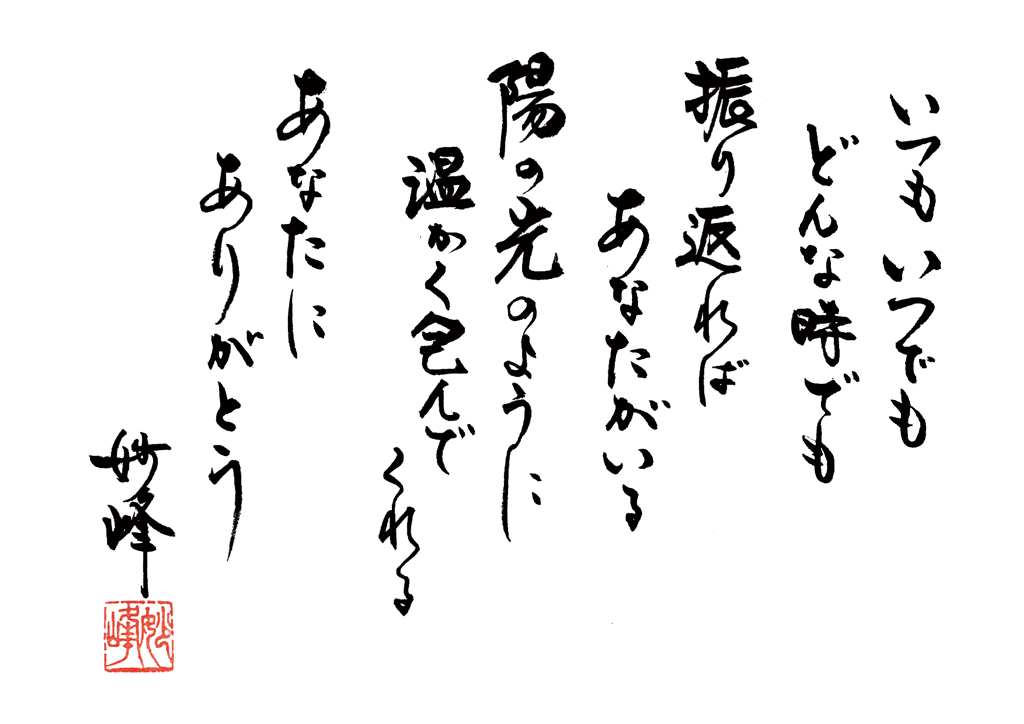 いつもいつでも
どんな時でも
振り返れば
あなたがいる
陽の光のように
温かく包んで
くれる
あなたに
ありがとう
妙峰
妙峰